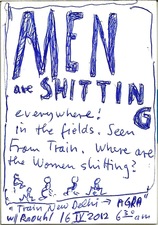 MEN
are SHITTING
everywhere!
in the fields. Seen
from Train. Where are
the Women shitting?
"Train New Delhi → AGRA"
w/ Raquhl 16 IV 2012 6³⁰ am